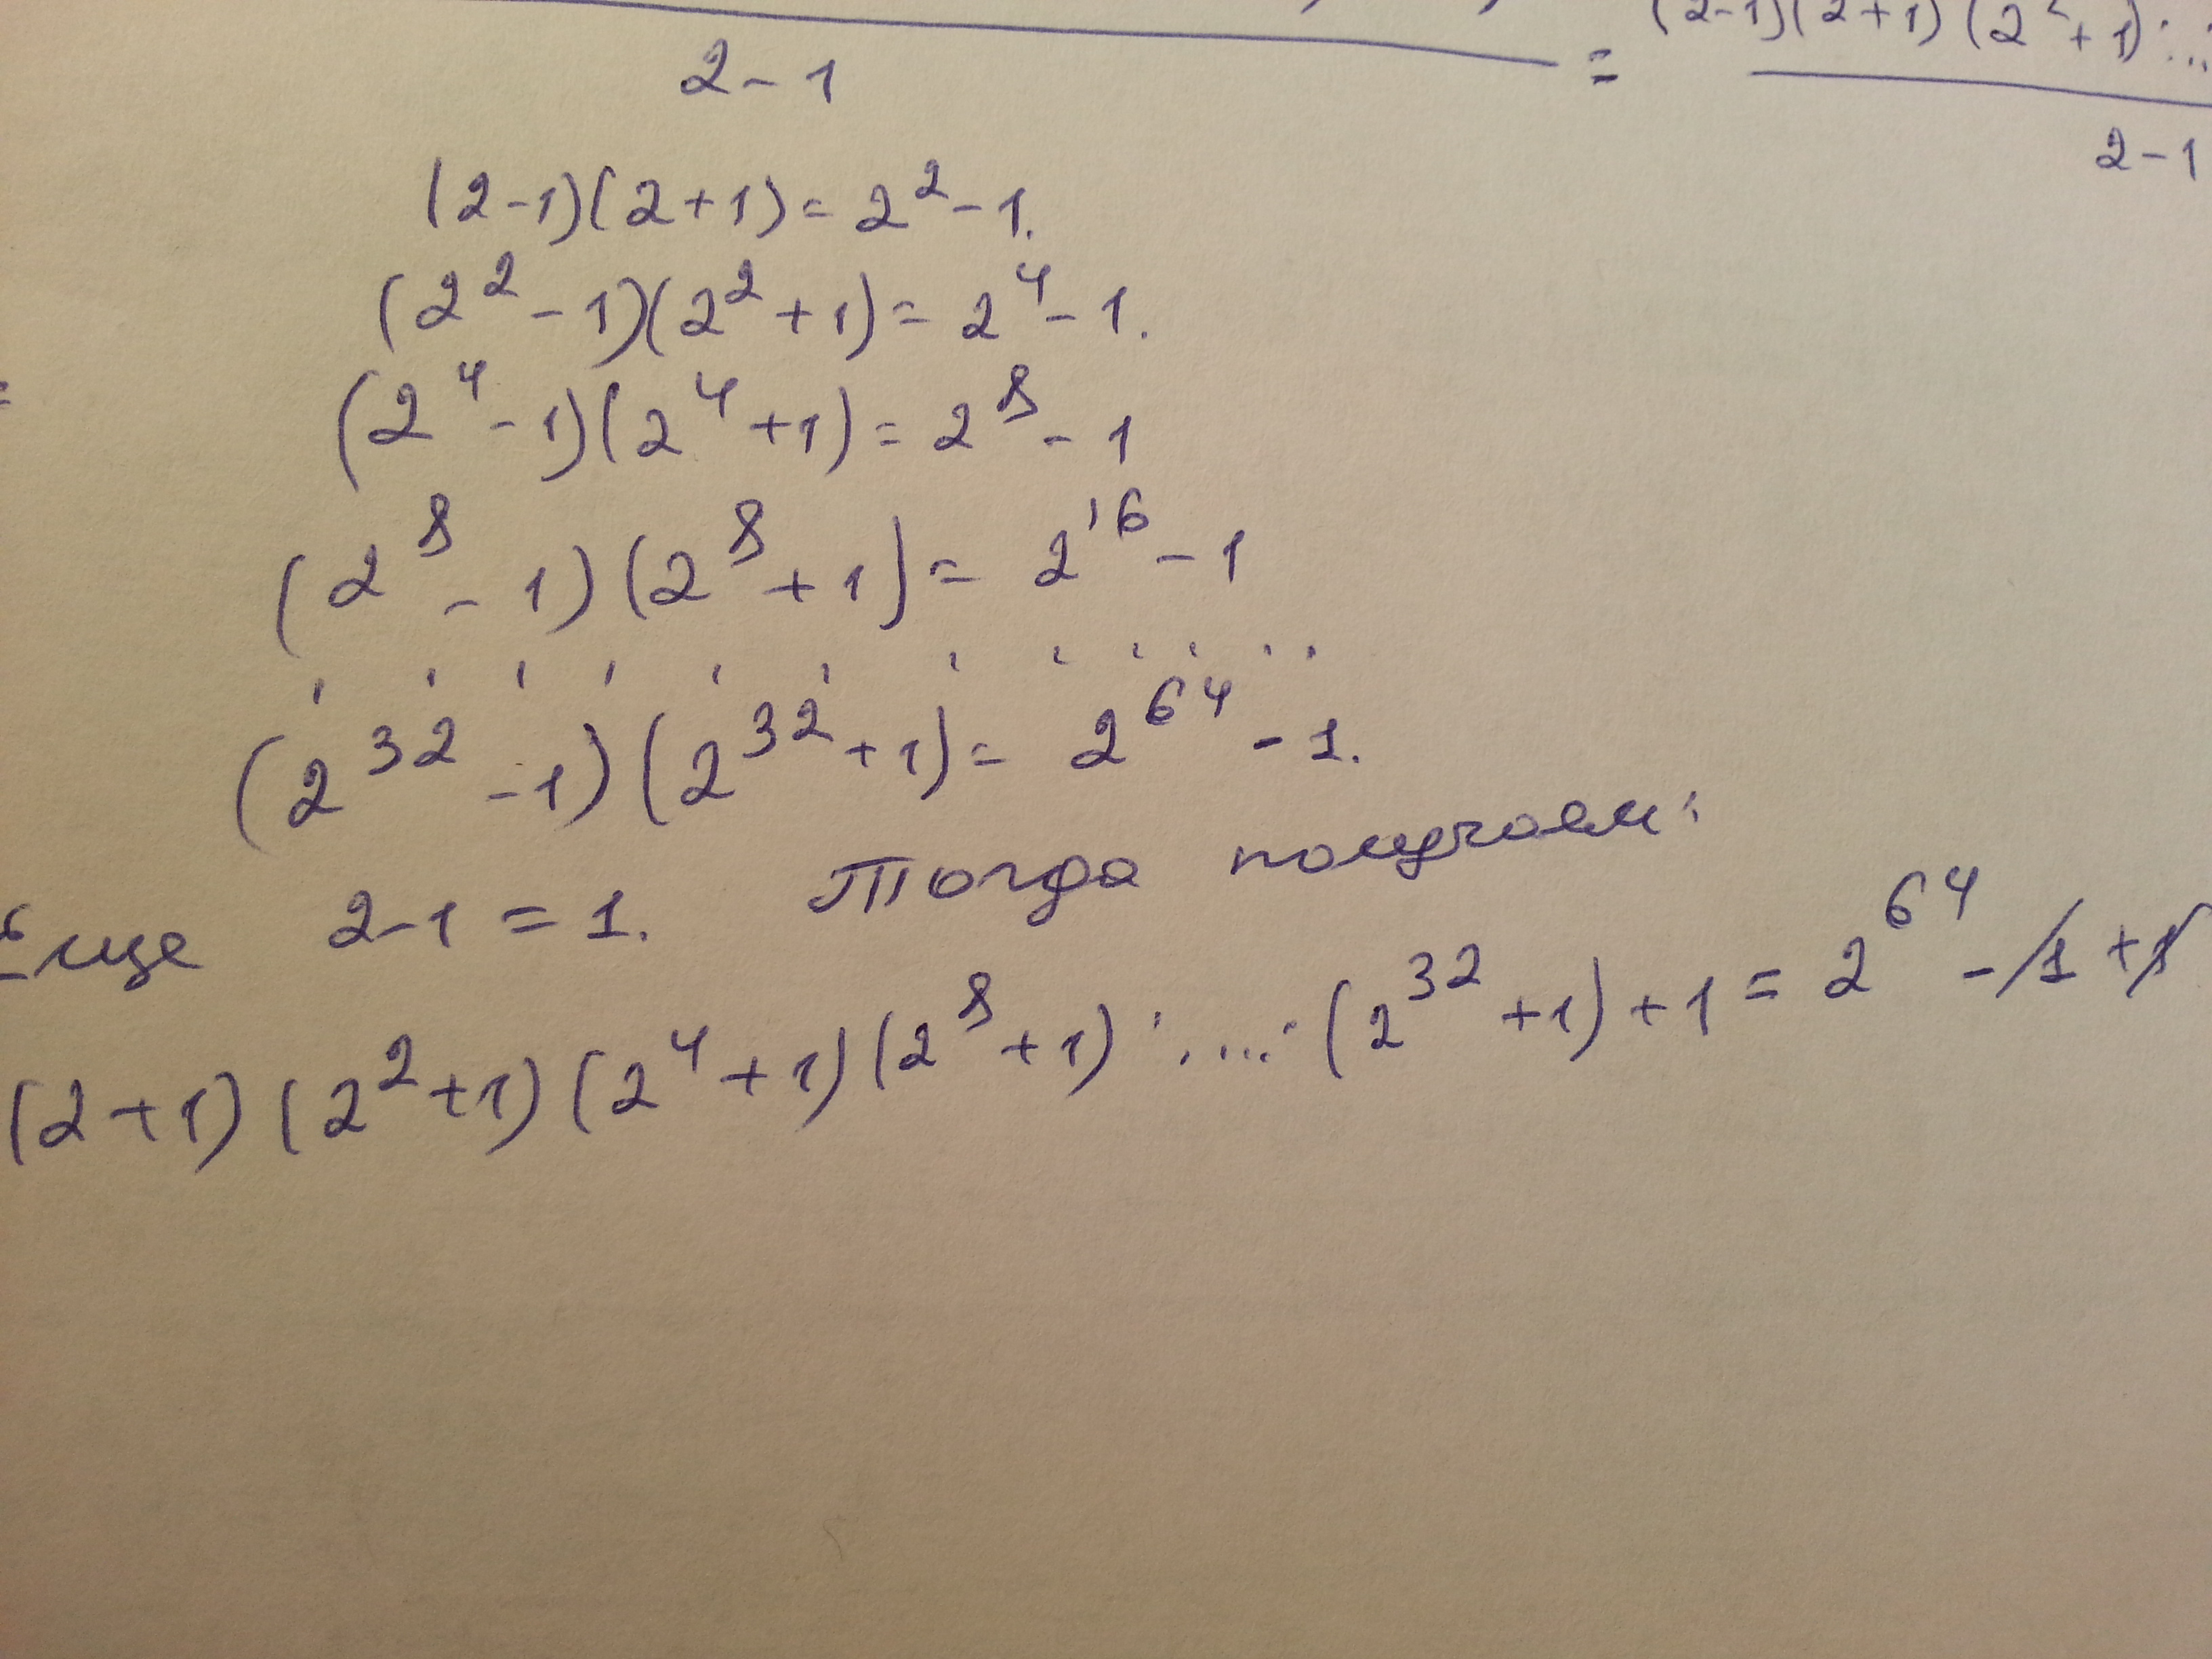 2-1 = (2-1)(2+1)(2²+1)·...
2-1
(2-1)(2+1)=2²-1.
(2²-1)(2²+1)=2⁴-1.
(2⁴-1)(2⁴+1)=2⁸-1
(2⁸-1)(2⁸+1)=2¹⁶-1
. . . . . . . . . . . .
(2³²-1)(2³²+1)=2⁶⁴-1.
Еще 2-1=1. Тогда получаем:
(2+1)(2²+1)(2⁴+1)(2⁸+1)·....·(2³²+1)+1=2⁶⁴-1+1